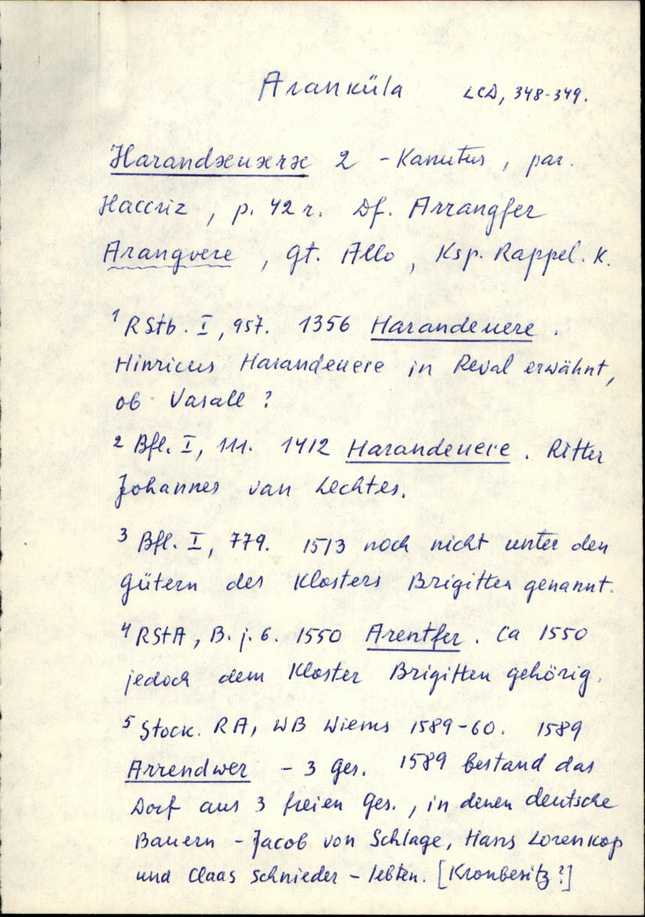 Aranküla LCD, 348-349.
Harandæuæræ 2 - Kanutus, par.
Haccriz, p. 42 r. Df. Arrangfer
Arangvere, Gt. Allo, Ksp. Rappel. K.
¹ RStb. I, 957. 1356 Harandeuere.
Hinricus Harandeuere in Reval erwähnt,
ob Vasall?
² Bfl. I, 111. 1412 Harandeuere. Ritter
Johannes van Lechtes.
³ Bfl. I, 779. 1513 noch nicht unter den
gütern des Klosters Brigitten genannt.
⁴ RStA, B. j. 6. 1550 Arentfer. Ca 1550
jedoch dem Kloster Brigitten gehörig.
⁵ Stock. RA, WB Wiems 1589-60. 1589
Arrendwer - 3 Ges. 1589 bestand das
Dorf aus 3 freien Ges., in denen deutsche
Bauern - Jacob von Schlage, Hans Lorenkop
und Claas Schnieder - lebten. [Kronbesitz?]